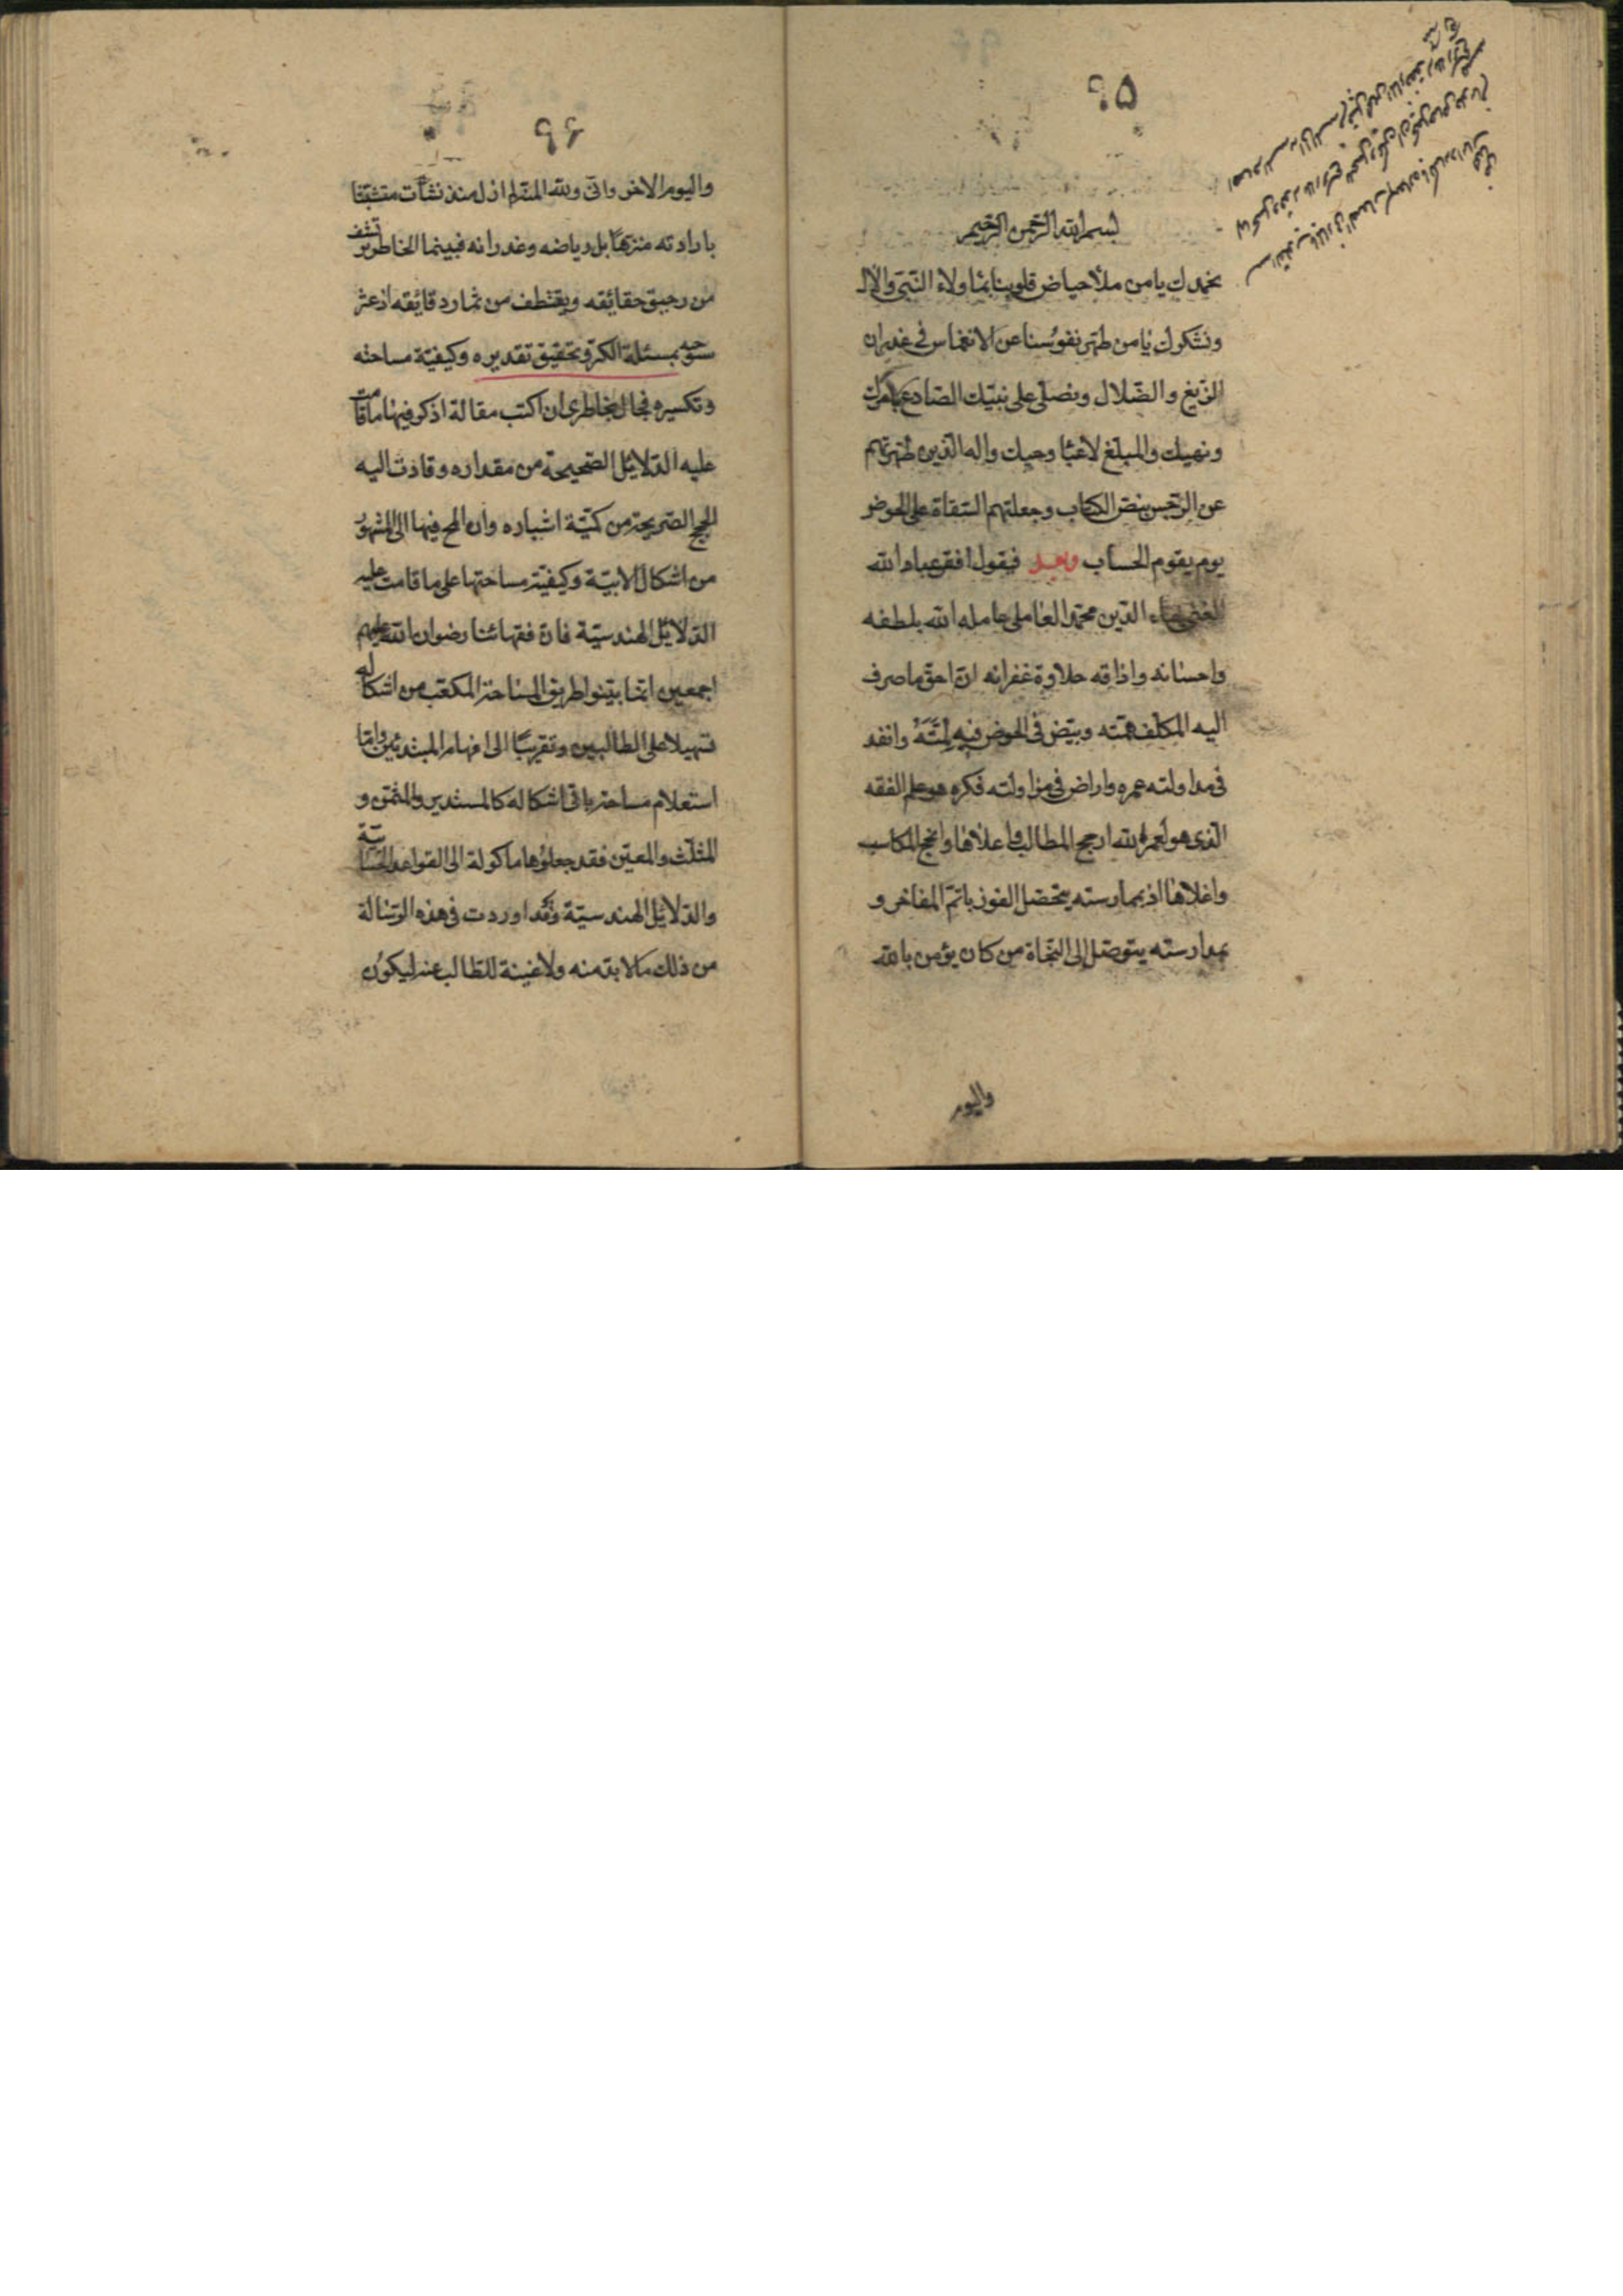 ٩٥
بسم الله الرحمن الرحيم
نحمدك يا من ملأ حياض قلوبنا بماء ولاء النبى والال
ونشكرك يا من طهر نفوسنا عن الانغماس فى غدران
الزيغ والضلال ونصلى على نبيك الصادع بامرك
ونهيك والمبلغ لاعباء وحيك واله الذين طهرتهم
عن الرجس بنص الكتاب وجعلتهم السقاة على الحوض
يوم يقوم الحساب وبعد فيقول افقر عباد الله
الغنى بهاء الدين محمد العاملى عامله الله بلطفه
واحسانه واذاقه حلاوة غفرانه ان احق ما صرف
اليه المكلف همته وبيض فى الخوض فيه لمته وانفد
فى مداولته عمره واراض فى مزاولته فكره هو علم الفقه
الذى هو لعمر الله ارجح المطالب واعلاها وانجح المكاسب
واغلاها اذ بممارسته يتحصل الفوز باتم المفاخر و
بمدارسته يتوصل الى النجاة من كان يؤمن بالله
واليوم
٩٦
واليوم الاخر وانى ولله المنة لم ازل منذ نشأت متشبثا
بارادته متنزها بل رياضه وغدرانه فبينما الخاطر يرتشف
من رحيق حقائقه ويقتطف من ثمار دقائقه اذ عثر
بمسئلة الكر وتحقيق تقديره وكيفية مساحته
وتكسيره فجال بخاطرى ان اكتب مقالة اذكر فيها ما قامت
عليه الدلايل الصحيحة من مقداره وقادت اليه
الحجج الصريحة من كمية اشباره وان المح فيها الى المشهور
من اشكال الابنية وكيفية مساحتها على ما قامت عليه
الدلايل الهندسية فان فقهائنا رضوان الله عليهم
اجمعين انما بينوا طريق المساحة المكعب من اشكاله
تسهيلا على الطالبين وتقريبا الى افهام المبتدئين واما
استعلام مساحة باقى اشكاله كالمستدير والمثمن و
المثلث والمعين فقد جعلوها ماكولة الى القواعد الحسابية
والدلايل الهندسية وقد اوردت فى هذه الرسالة
من ذلك ما لا بد منه ولا غنية للطالب عنه ليكون